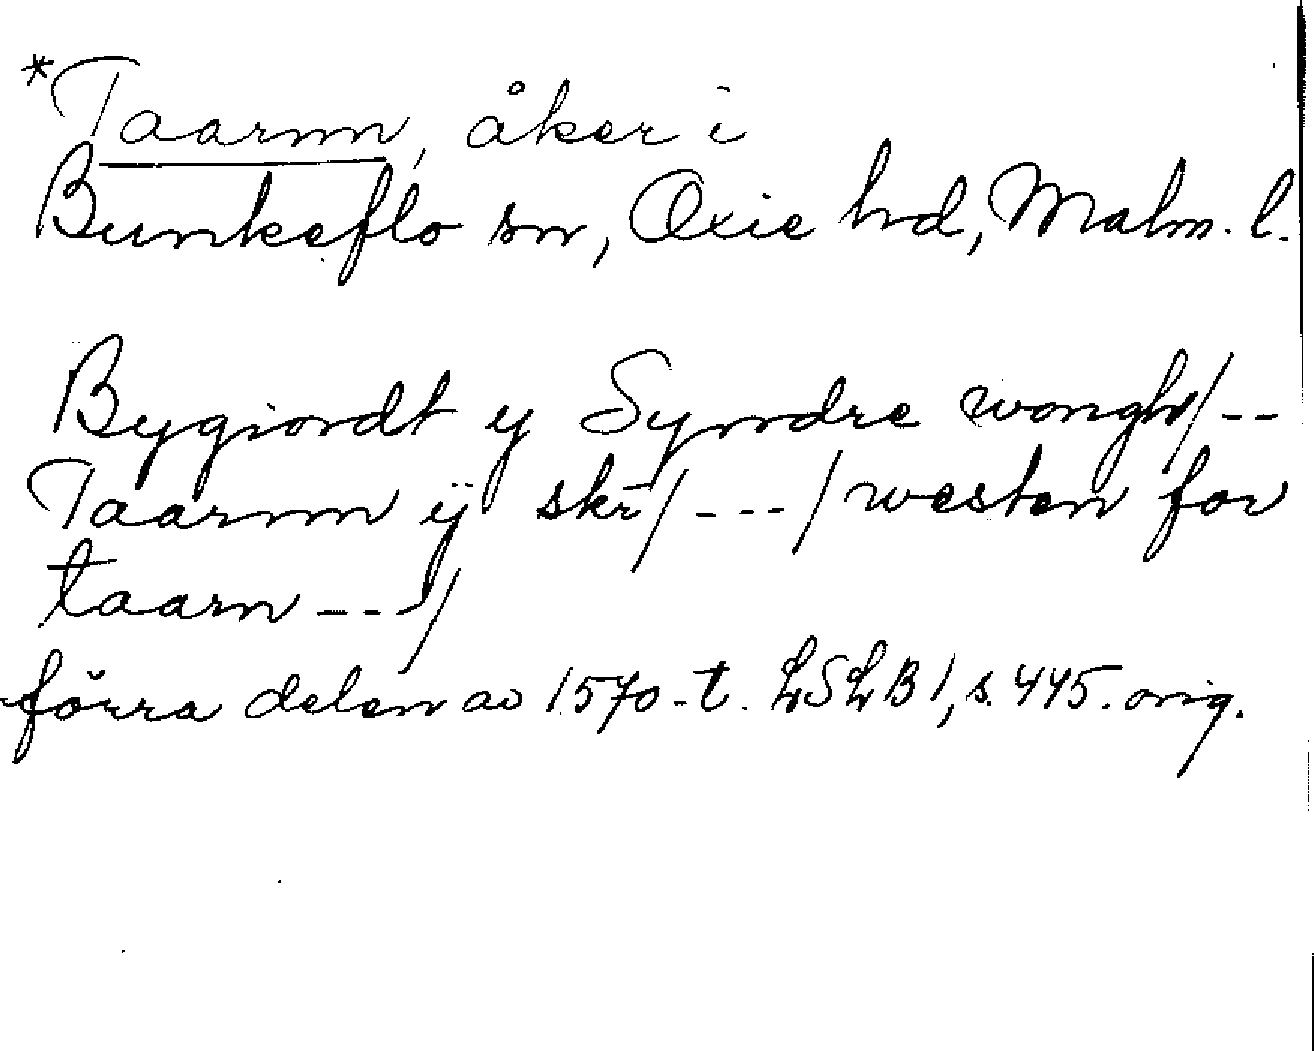 *Taarnn, åker i
Bunkeflo sn, Oxie hd, Malm. l.
Bygiordt y Syndre wongh/--
Taarnn ÿ skr̄/---/westen for
taarn---/
förra delen av 1570-t. LSLB1, s. 445. orig.